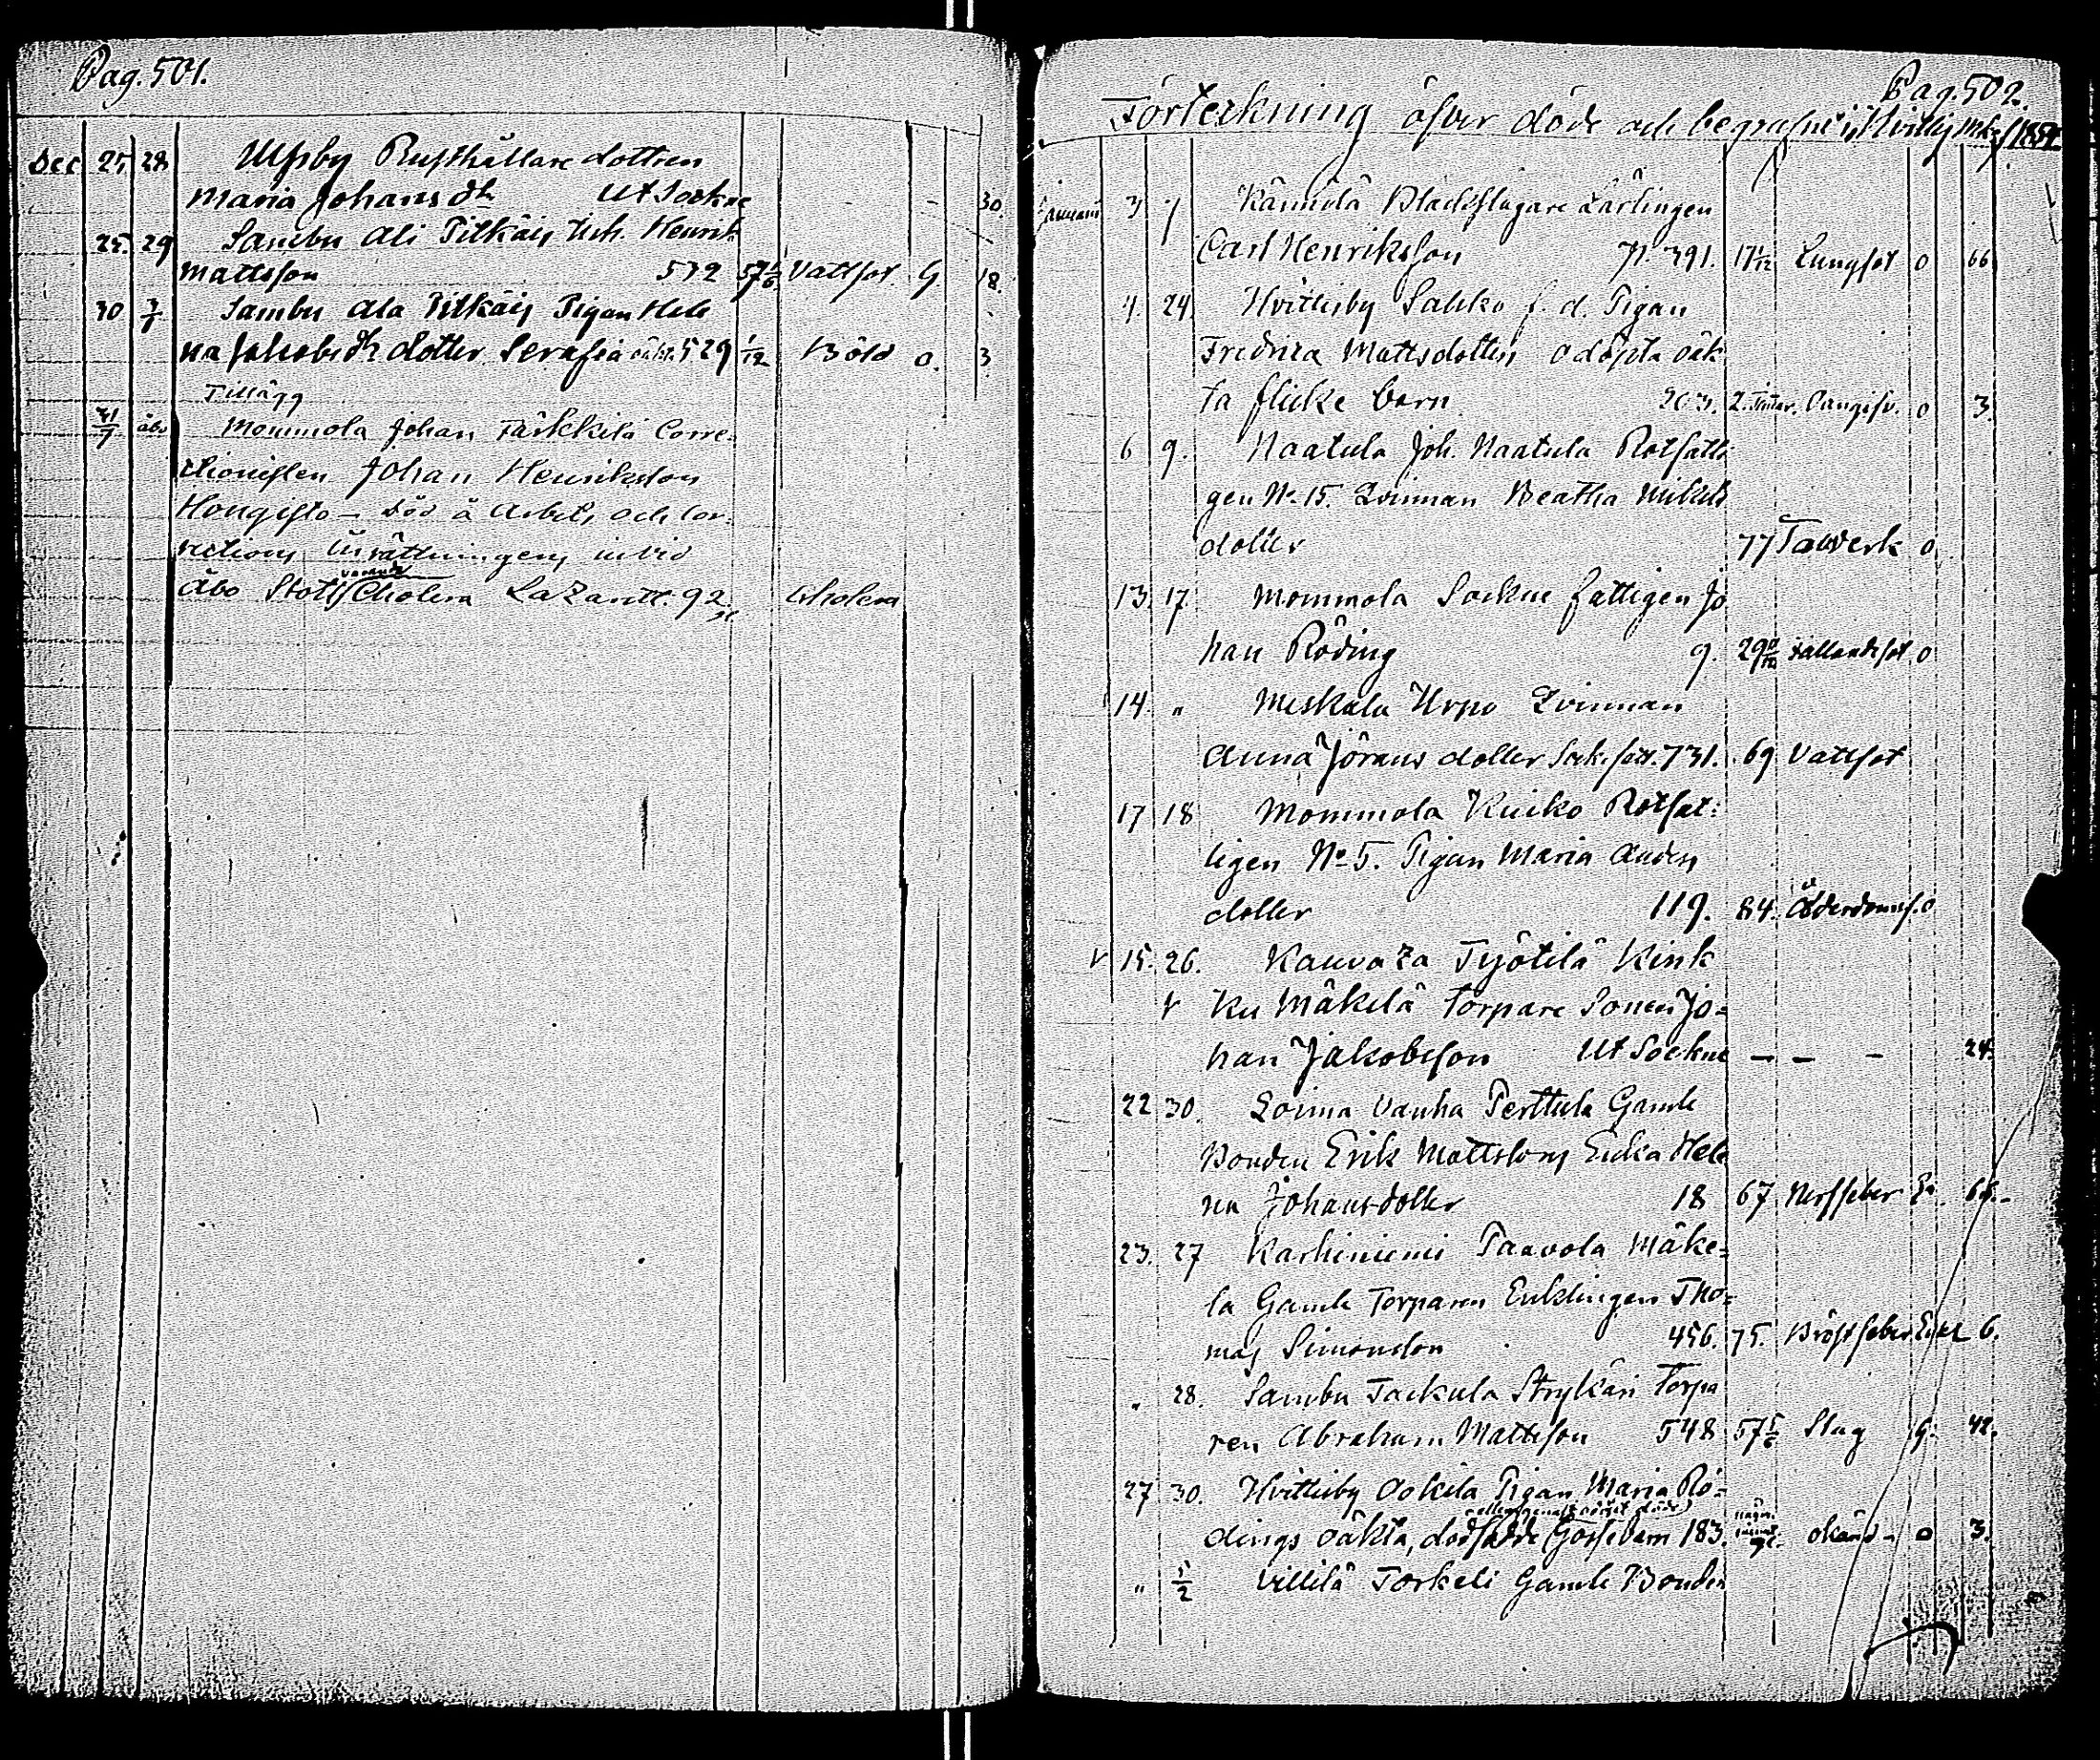 Pag. 501.
Dec 25 28 Ulfsby Rusthållare dottren
Maria Johansdr Ut Sockne - 30.
25. 29 Sambu Ali Pitkäis Inh. Henrik
Mattsson 532 57 Vattsot. G. 18.
30 Sambu Ala Pitkäis Pigan Hele
na Jakobsdr dotter Serafia oäkt. 529 1/12 Böld o. 3
Tillägg
31/7 åbo Mommola Johan Tärkkilä Corre-
ctionisten Johan Henriksson
Hongisto - död å Arbets och Cor-
rections inrättningens invid
varande
Åbo Slott Cholera Lazarett. 92 Cholera
Pag. 502.
Förteckning öfver döde och begrafne i Hvittis
Januari 3 7 Kännölä Blackslagare Lärlingen
Carl Henriksson 391. 17 Lungsot o 66
4. 24. Hvittisby Sahko f. d. Pigan
Fredrica Mattsdotters odöpta oäk
ta flicke barn 203. 2. o 3.
6 9. Naatula Joh. Naatula Rotfatti
gen No 15. Qvinnan Beatha Mikels
dotter 77 Tawerk o
13. 17. Mommola Sockne fattigen Jo
han Röding 9. 29 fallandesot o
14. " Meskala Urpo Qvinnan
Anna Jörans dotter Sock. fatt. 731. 69 Vattsot
17 18 Mommola Kuiko Rotfat-
tigen No 5. Pigan Maria Anders
dotter 119. 84. Ålderdomsf. o
v 15. 26. Kauvaza Työtilä Kink
v ku Mäkelä Torpare Sonen Jo-
han Jakobsson Ut Sockne - - - 24.
22 30. Loima Vanha Perttula Gamle
Bonden Erik Mattssons Enka Hele
na Johansdotter 18 67 Nerffeber
23. 27 Karhiniemi Paavola Mäke-
la Gamle Torparen Enklingen Tho-
mas Simonsson 456. 75. Bröstfeber Enkl 6.
" 28. Sambu Tackula Strykäri Torpa
ren Abraham Mattsson 548 57 5/6 Slag G. 42.
27 30. Hvittisby Ookila Pigan Maria Rö-
dings oäkta, dödfödde Gossebarn 183. okänd - o 3.
" 1/2 Villilä Torkeli Gamle Bonden